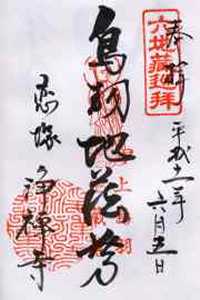 奉拝
六地蔵巡拝
平成十一年
六月五日
鳥羽地蔵尊
上鳥羽
恋塚
浄禅寺